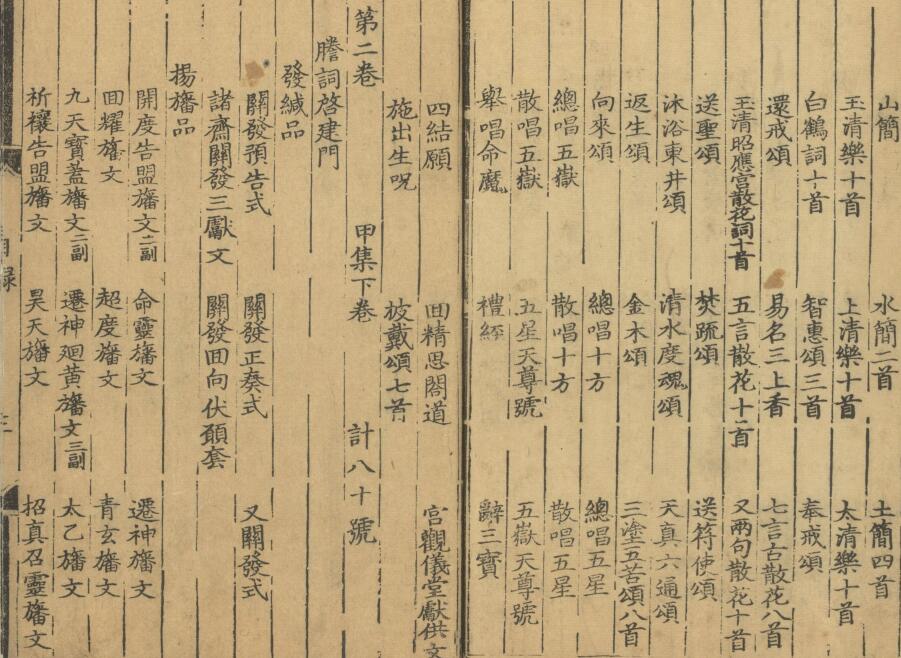 山簡 水簡二首 土簡四首
玉清樂十首 上清樂十首 太清樂十首
白鶴詞十首 智惠頌三首 奉戒頌
還戒頌 易名三上香 七言古散花八首
玉清昭應宮散花詞十首 五言散花十二首 又两句散花十首
送聖頌 焚疏頌 送符使頌
沐浴東井頌 清水度魂頌 天真六通頌
返生頌 金木頌 三塗五苦頌八首
向來頌 總唱十方 總唱五星
總唱五嶽 散唱十方 散唱五星
散唱五嶽 五星天尊號 五嶽天尊號
舉唱命魔 禮經 辭三寶
四結願 回精思閤道 宮觀儀堂獻供文
施出生呪 披戴頌七首
第二卷 甲集下卷 計八十號
謄詞啓建門
發緘品
關發預告式 關發正奏式 又關發式
諸齋關發三獻文 關發回向伏願套
揚旛品
開度告盟旛文二副 命靈旛文 遷神旛文
回耀旛文 超度旛文 青玄旛文
九天寶蓋旛文二副 遷神廻黄旛文三副 太乙旛文
祈禳告盟旛文 昊天旛文 招真召靈旛文
目錄